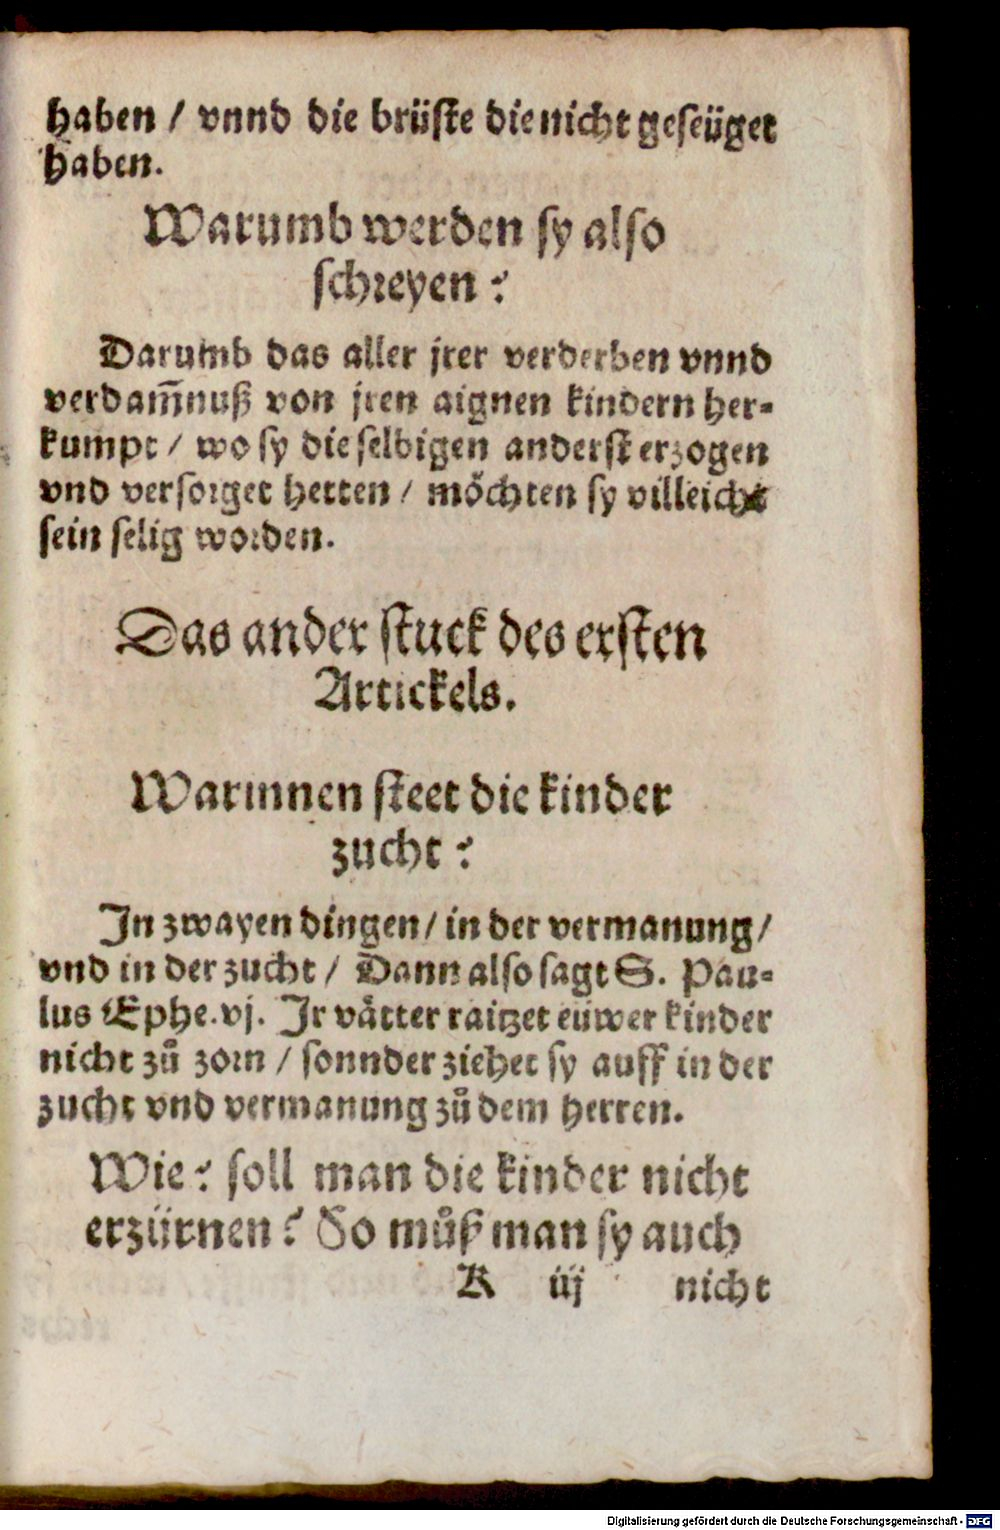 haben / vnnd die brüste die nicht geseüget
haben.
Warumb werden sy also
schreyen?
Darumb das aller jrer verderben vnnd
verdam̃nuß von jren aignen kindern her-
kumpt / wo sy die selbigen anderst erzogen
vnd versorget hetten / möchten sy villeicht
sein selig worden.
Das ander stuck des ersten
Artickels.
Warinnen steet die kinder
zucht?
In zwayen dingen / in der vermanung /
vnd in der zucht / Dann also sagt S. Pau-
lus Ephe. vj. Ir vätter raitzet eüwer kinder
nicht zů zorn / sonnder ziehet sy auff in der
zucht vnd vermanung zů dem herren.
Wie? soll man die kinder nicht
erzürnen? So můß man sy auch
K iij nicht
Digitalisierung gefördert durch die Deutsche Forschungsgemeinschaft - DFG